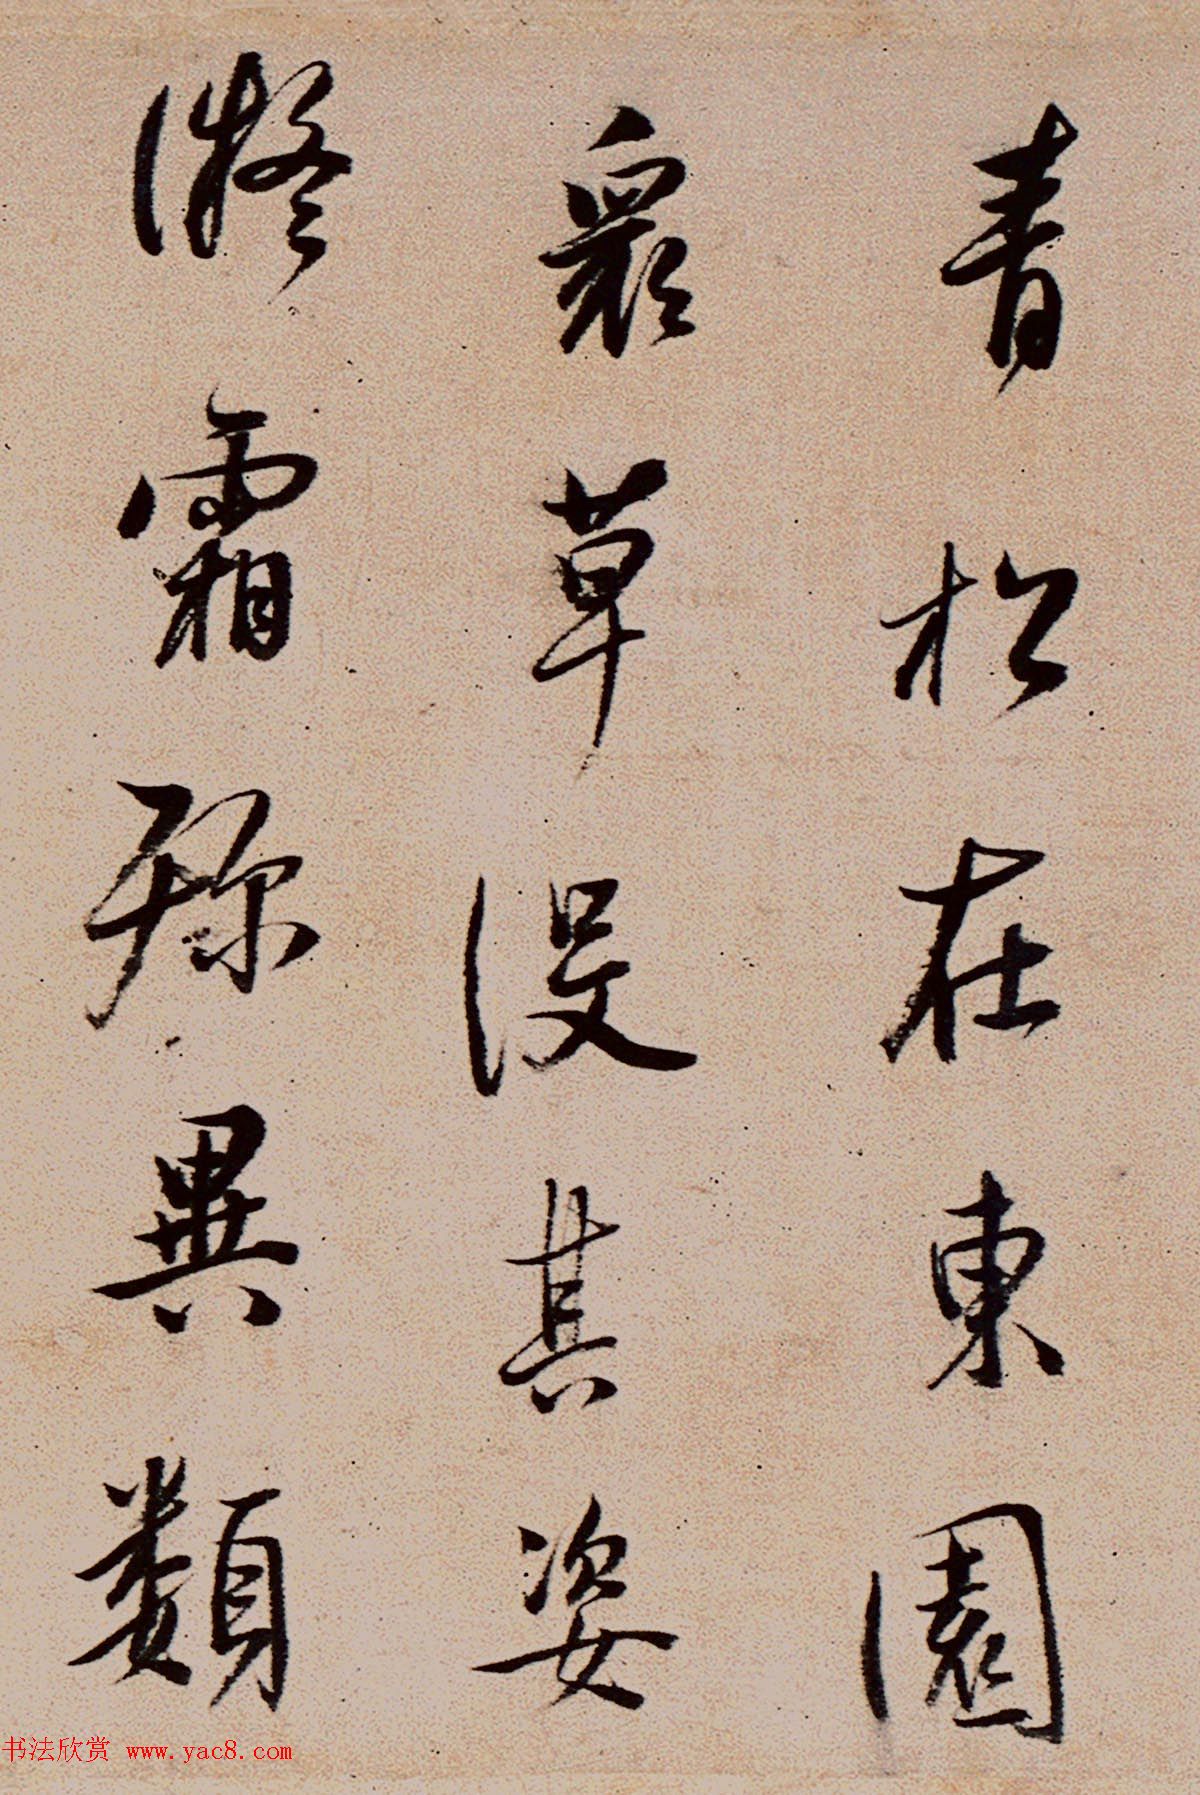 青松在東園
衆草沒其姿
凝霜殄異類
书法欣赏 www.yac8.com